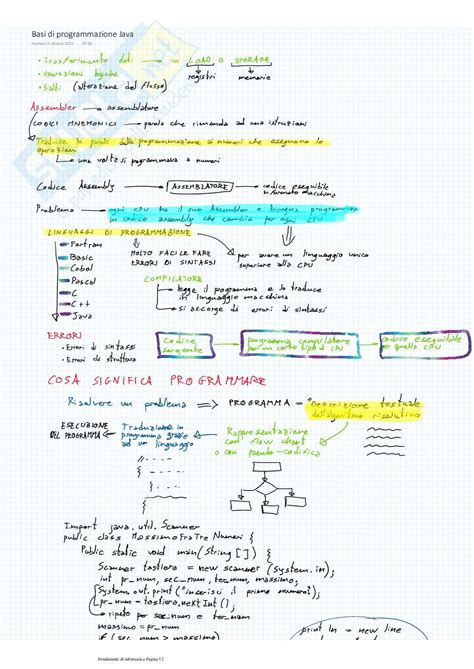 Basi di programmazione Java
martedì 4 ottobre 2022
• Trasferimento dati in LOAD O STORAGE
registri memorie
• Operazioni logiche
• Salti (alterazione del flusso)
Assembler → assemblatore
CODICI MNEMONICI → parola che rimanda ad una istruzioni
Traduce le parole della programmazione in numeri che eseguono le operazioni
una volta si programmava a numeri
Codice Assembly → ASSEMBLATORE → codice eseguibile in formato macchina
Problema → ogni CPU ha il suo Assembler e bisogna programmare in codice assembly che cambia per ogni CPU
LINGUAGGI DI PROGRAMMAZIONE
→ Fortran
→ Basic
→ Cobol
→ Pascal
→ C
→ C++
→ Java
MOLTO FACILE FARE ERRORI DI SINTASSI
per avere un linguaggio unico superiore alla CPU
COMPILATORE
→ legge il programma e lo traduce in linguaggio macchina
→ si accorge di errori di sintassi
ERRORI
• Errori di sintassi
• Errori di struttura
Codice sorgente
programma compilatore per un certo tipo di CPU
codice eseguibile per quella CPU
COSA SIGNIFICA PROGRAMMARE
Risolvere un problema => PROGRAMMA = "Descrizione testuale dell'algoritmo risolutivo
ESECUZIONE DEL PROGRAMMA
Traduzione in programma grazie ad un linguaggio
Rappresentazione con flow chart o con pseudo-codifica
Import java.util.Scanner
public class MassimoFraTreNumeri {
Public static void main(String[]) {
Scanner tastiera = new scanner (System.in);
int pr_num, sec_num, ter_num, massimo;
System.out.print("inserisci il primo numero");
pr_num = tastiera.nextInt();
ripeto per sec_num e ter_num
massimo = pr_num
if (sec_num > massimo)
print ln = new line
Fondamenti di informatica Pagina 12